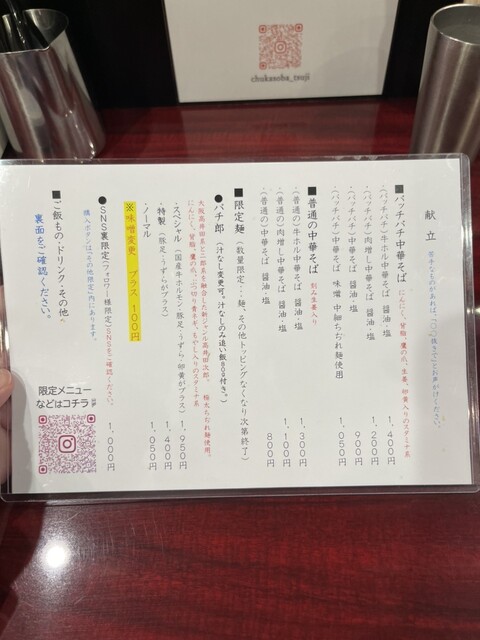 chukasoba_tsuji
献立
苦手なものがあれば、「〇〇抜きで」とお声がけください。
■バッチバチ中華そば にんにく、背脂、鷹の爪、生姜、卵黄入りのスタミナ系
(バッチバチ)牛ホル中華そば 醤油・塩 1,400円
(バッチバチ)肉増し中華そば 醤油・塩 1,200円
(バッチバチ)中華そば 醤油・塩 900円
(バッチバチ)中華そば 味噌 中細ちぢれ麺使用 1,050円
■普通の中華そば 刻み生姜入り
(普通の)牛ホル中華そば 醤油・塩 1,300円
(普通の)肉増し中華そば 醤油・塩 1,100円
(普通の)中華そば 醤油・塩 800円
■限定麺(数量限定…麺、その他トッピングなくなり次第終了)
●バチ郎(汁なし変更可。汁なしのみ追い飯80g付き。)
大阪高井田系と二郎系を融合した新ジャンル高井田次郎。極太ちぢれ麺使用。
にんにく、背脂、鷹の爪、ぶつ切り青ネギ、もやし入りのスタミナ系
・スペシャル(国産牛ホルモン・豚足・うずら・卵黄がプラス) 1,950円
・特製(豚足・うずらがプラス) 1,400円
・ノーマル 1,050円
※味噌変更 プラス100円
●SNS裏限定(フォロワー様限定)SNSをご確認ください。 1,000円
購入ボタンは「その他限定」内にあります。
■ご飯もの・ドリンク・その他
裏面をご確認ください。
限定メニュー
などはコチラ